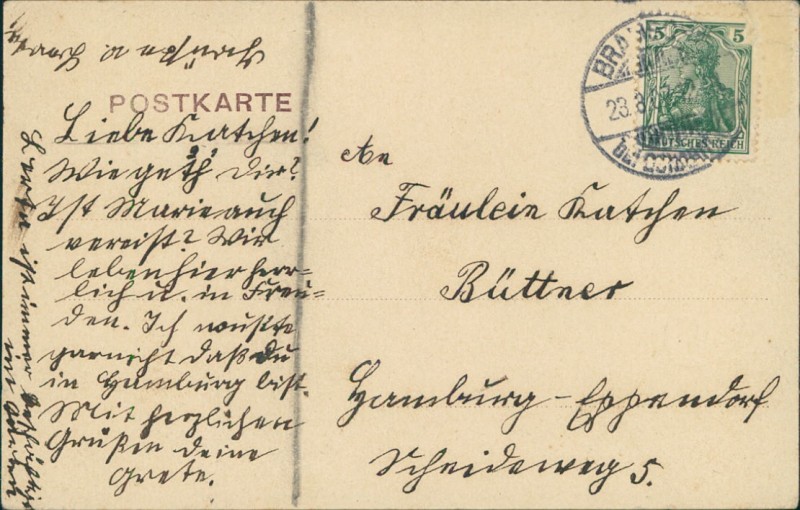 POSTKARTE
Liebe Katchen!
Wie geth's Dir?
Ist Marie auch
vereist? Wir
leben hier herr=
lich u. in Freu=
den. Ich wußte
garnicht daß du
in Hamburg bist.
Mit herzlichen
Grüßen deine
Grete.
ist immer
An
Fräulein Katchen
Büttner
Hamburg-Eppendorf
Scheideweg 5.
BRA
23.8
5 5
DEUTSCHES REICH